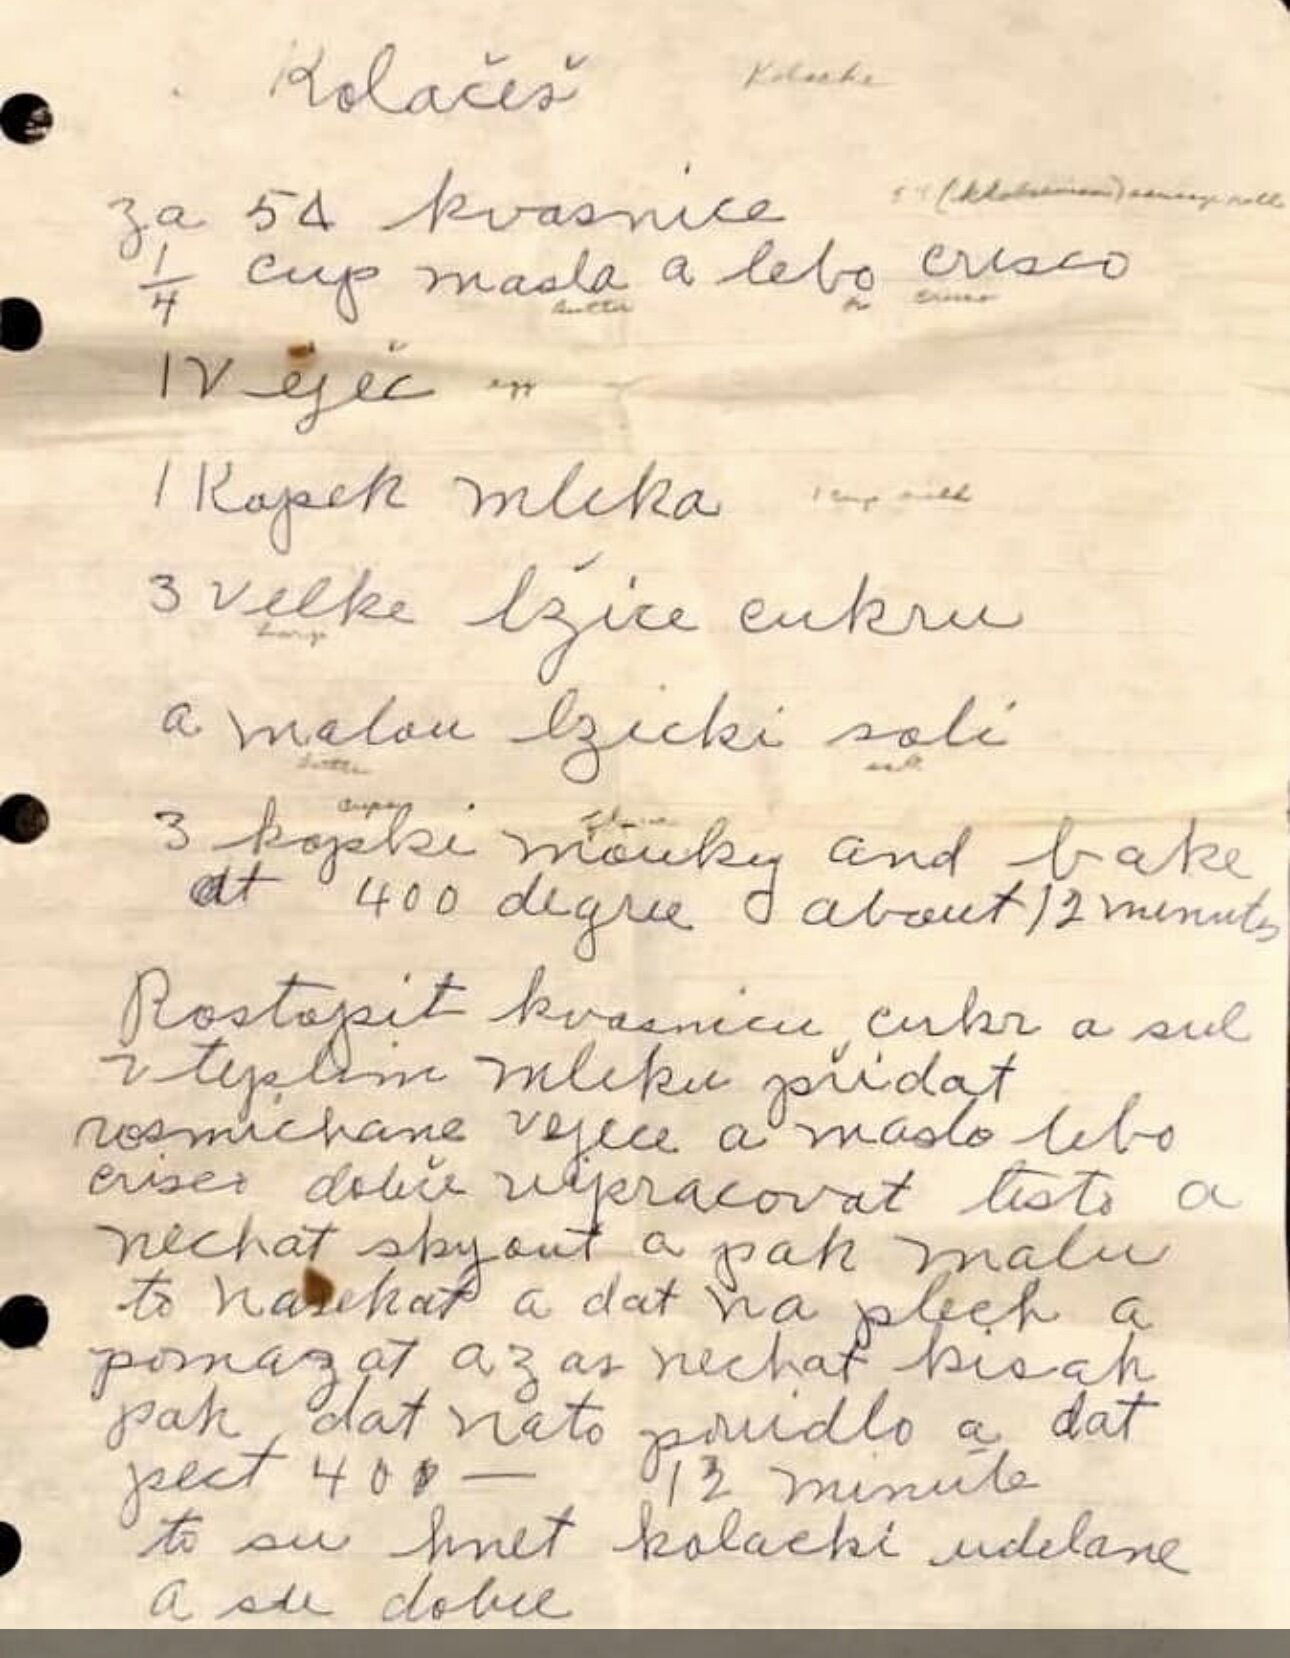 Kolačeš Kolache
za 54 kvasnice
sausage rolls
1/4 cup masla a lebo crisco
butter or crisco
1 Vejěč egg
1 Kopek mleka 1 cup milk
3 velke lžice cukru
large
a malou lzicki soli
little salt
cups flour
3 kopski mouky and bake
at 400 degree about 12 minutes
Rostopit kvasnicu, cukr a sul
v teplim mleku přidat
rosmichane vejece a maslo lebo
crisco dobře vipracovat testo a
nechat skynout a pak malu
to nasekat a dat na plech a
pomazat a zas nechat kisak
pak dat nato povidlo a dat
pect 400 — 12 minute
to su hnet kolacki udelane
a su dobre